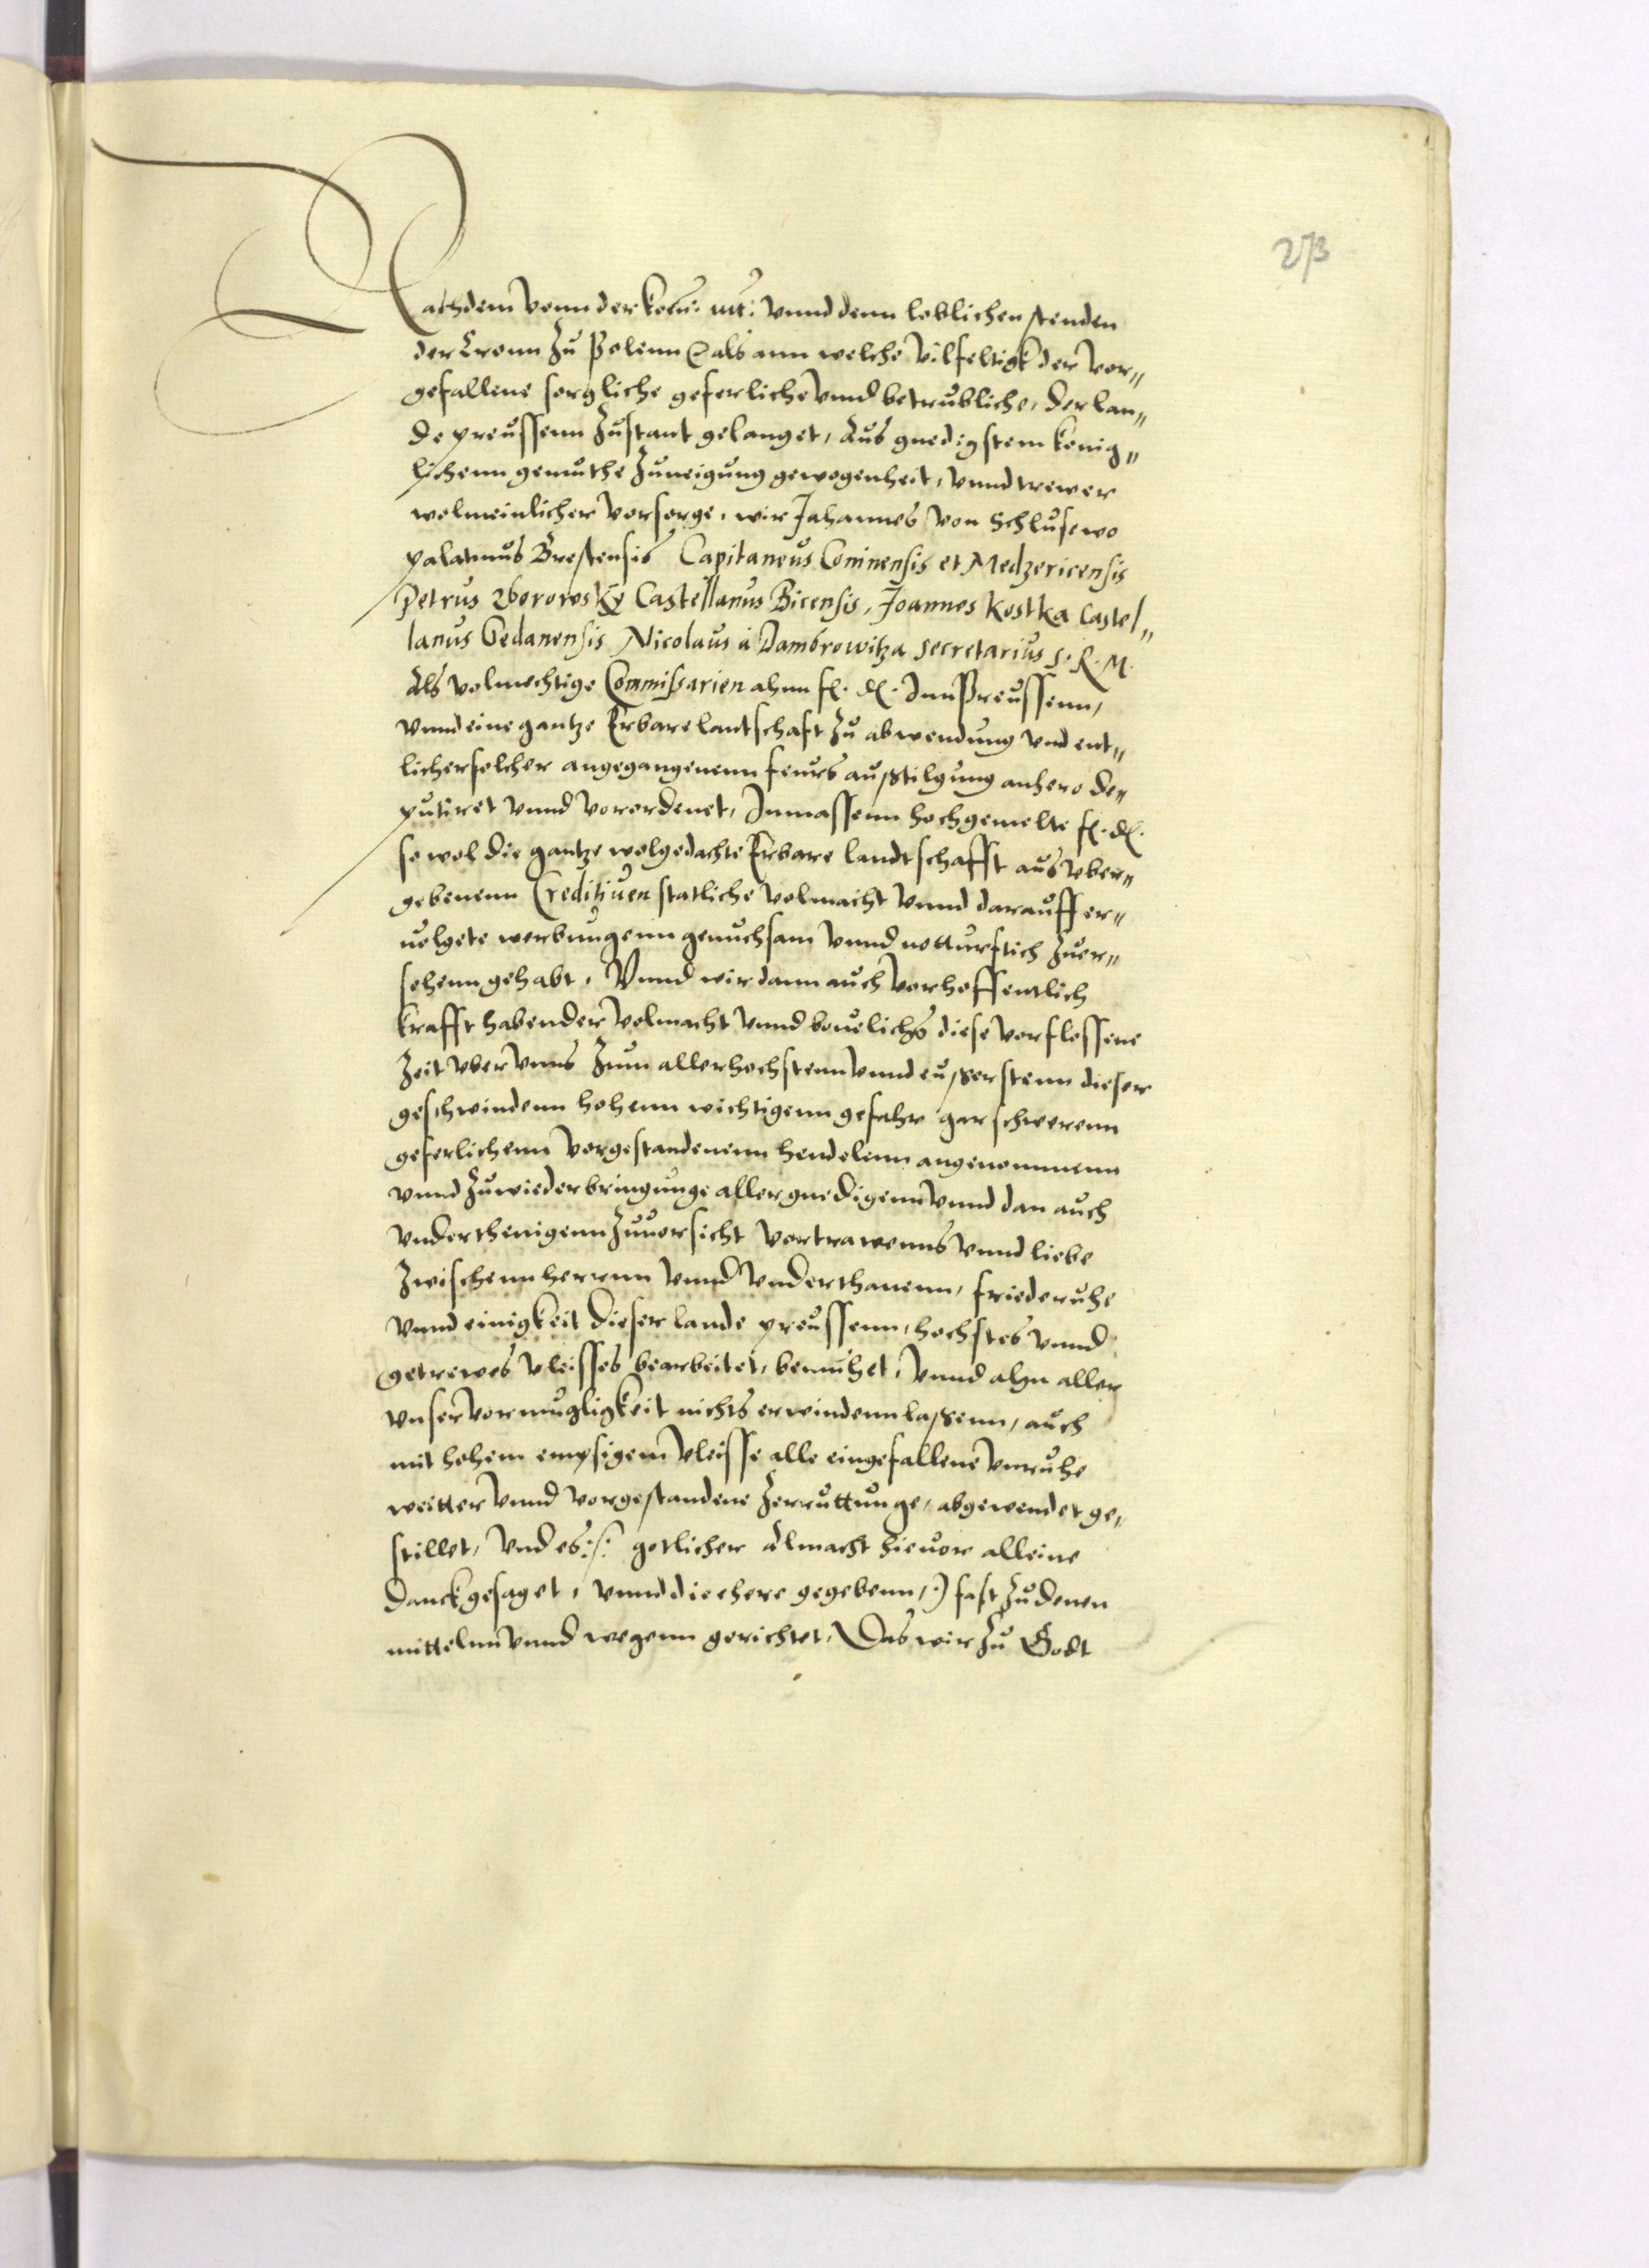 273
Nachdem vonn der Kön: Mt: vnnd denn loblichen stenden
der Cronn zu Polenn als ann welche vilfeltigk der vor„
gefallene sorgliche geferliche vnnd betrubliche, der lan„
de preussenn zustant gelanget, Aus gnedigstem konig„
lichenn gemuthe zuneigung gewogenheit, vnnd trewer
wolmeinlicher vorsorge, wir Johannes von Schlusewo
palatinus Brestensis Capitaneus Coninensis et Medzericensis
Petrus Zborowsky Castellanus Bicensis, Joannes Kostka Castel„
lanus Gedanensis Nicolaus à Dambrowitza secretarius S. R. M.
Als volmechtige Commissarien ahnn f. d. Inn Preussenn,
vnnd eine gantze Erbare lantschaft zu abwendung vnd ent„
licher solcher angegangenenn feurs außtilgung anhero de„
putiret vnnd vorordenet, Inmassenn hochgemelte f. d.
so wol die gantze wolgedachte Erbare landtschafft aus vber„
gebenenn Creditiuen statliche volmacht vnnd darauff er„
uolgete werbungenn genuchsam vnnd notturftich zuer„
sehenn gehabt, Vnnd wir dann auch vorhoffentlich
krafft habender volmacht vnnd beuelichs diese vorflossene
zeit vber vnns zum allerhochstenn vnnd eußerstenn dieser
geschwindenn hohenn wichtigenn gefahr gar schwerenn
geferlichenn vorgestandenenn hendelenn angenommenn
vnnd zu wiederbringunge aller gnedigenn vnnd dan auch
vnderthenigenn zuuorsicht vortrawenns vnnd liebe
zwischenn herrnn vnnd vnderthanenn, friede ruhe
vnnd einigkeit dieser lande preussenn, hochstes vnnd
getrewes vleisses bearbeitet, bemuhet, vnnd ahn aller
vnser vormugligkeit nichts erwindenn laßenn, auch
mit hohem empsigem vleisse alle eingefallene vnruhe
weitter vnnd vorgestandene zerruttunge, abgewendet ge„
stillet, vnd es :/: gotlicher Almacht hieuor alleine
danck gesaget, vnnd die ehere gegebenn,) fast zu denen
mittelnn vnnd wegenn gerichtet, Das wir zu Godt